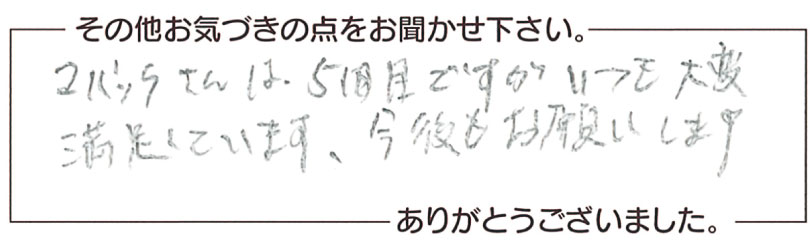 その他お気づきの点をお聞かせ下さい。
コバックさんは、5回目ですがいつも大変
満足しています、今後もお願いします
ありがとうございました。